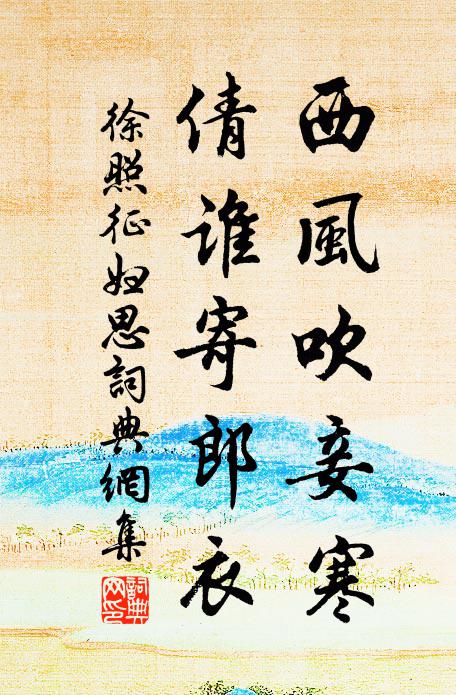 西風吹妾寒
倩誰寄郎衣
徐照征婦思詞典網集
詞典網印